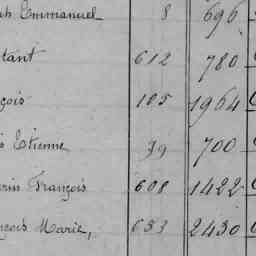 ph Emmanuel 8 696
tant 612 780
çois 105 1964
s Etienne 39 700
rin François 608 1422
nçois Marie, 633 2430